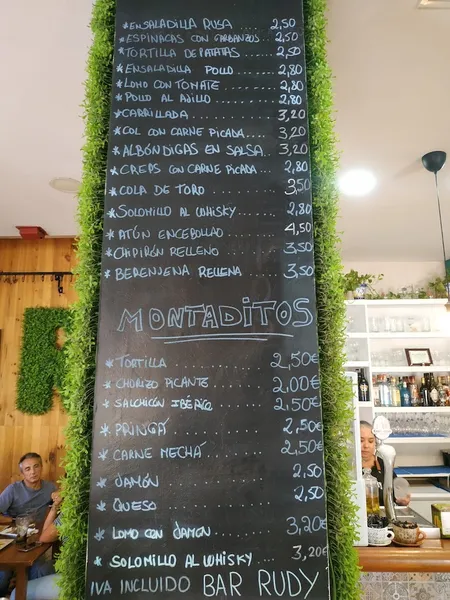 *ENSALADILLA RUSA ........ 2,50
*ESPINACAS CON GARBANZOS.. 2,50
*TORTILLA DE PATATAS ..... 2,50
*ENSALADILLA POLLO ....... 2,80
*LOMO CON TOMATE ......... 2,80
*POLLO AL AJILLO ......... 2,80
*CARRILLADA .............. 3,20
*COL CON CARNE PICADA..... 3,20
*ALBÓNDIGAS EN SALSA...... 3,20
*CREPS CON CARNE PICADA .. 2,80
*COLA DE TORO ............ 3,50
*SOLOMILLO AL WHISKY...... 2,80
*ATÚN ENCEBOLLAO ......... 4,50
*CHIPIRÓN RELLENO ........ 3,50
*BERENJENA RELLENA ....... 3,50
MONTADITOS
*TORTILLA ........ 2,50€
*CHORIZO PICANTE ..... 2,00€
*SALCHICÓN IBÉRICO ..... 2,50€
*PRINGÁ ......... 2,50€
*CARNE MECHÁ ....... 2,50€
*JAMÓN ......... 2,50
*QUESO ......... 2,50
*LOMO CON JAMON ...... 3,20€
*SOLOMILLO AL WHISKY .... 3,20€
IVA INCLUIDO BAR RUDY